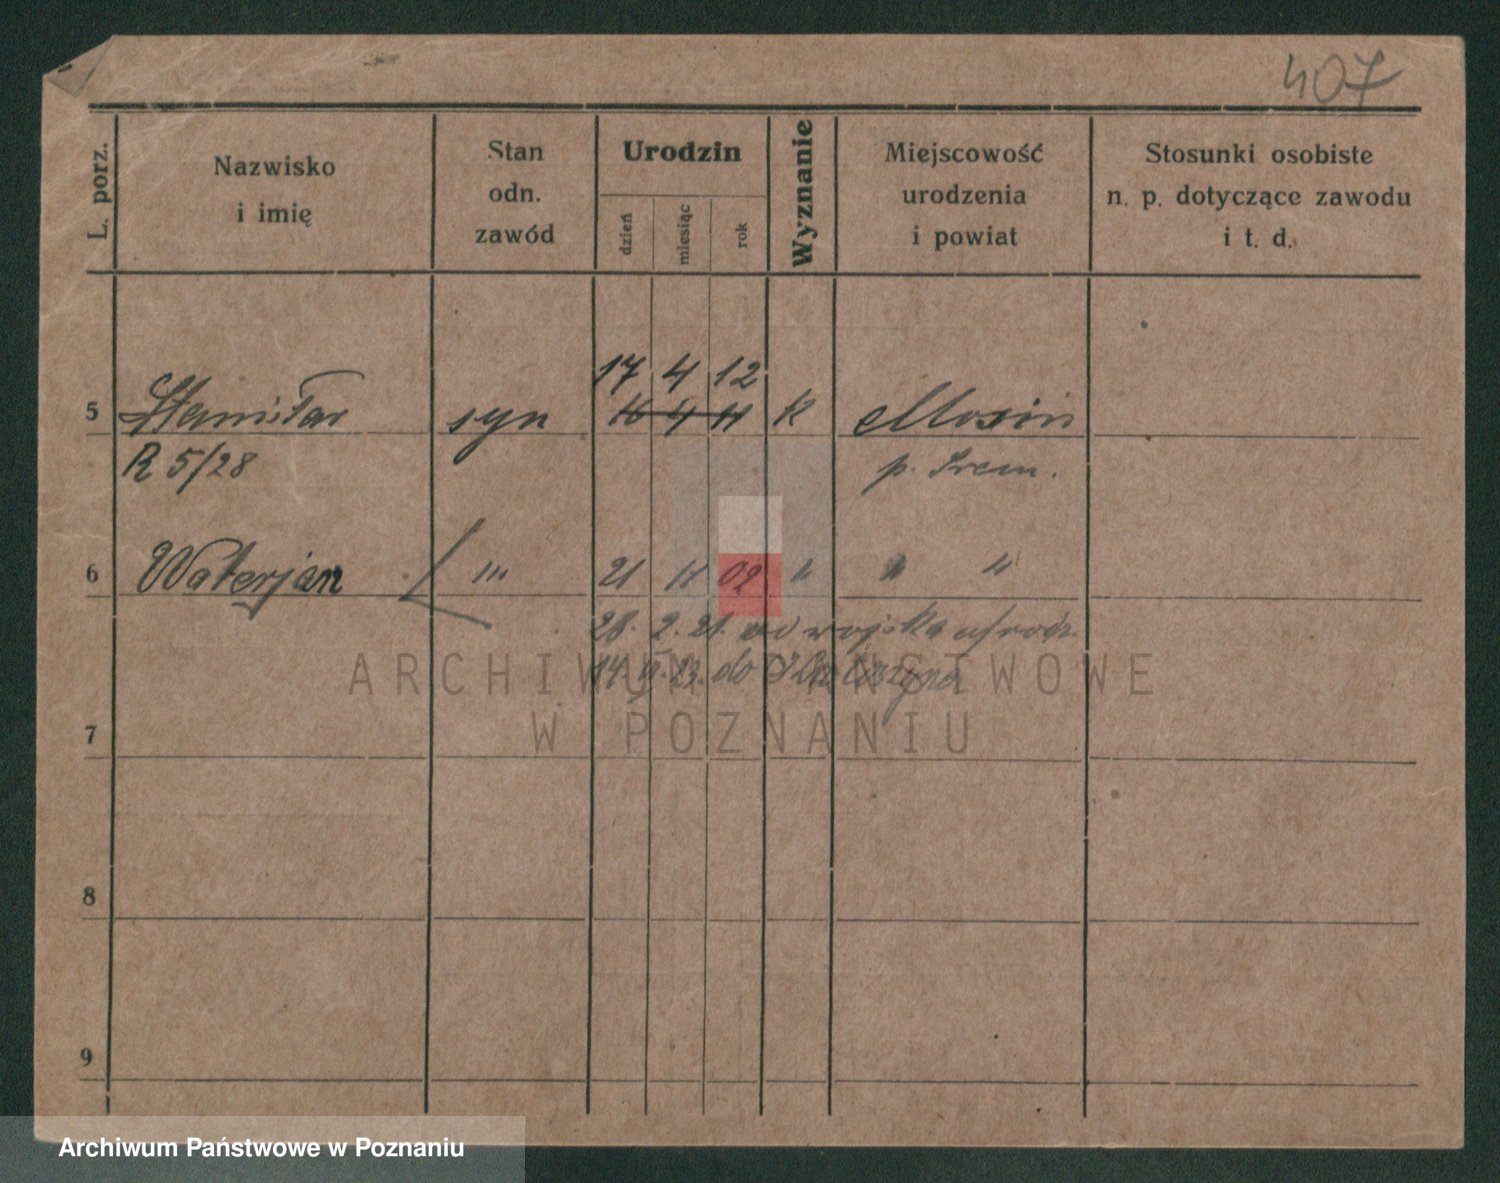 407
L. porz.
Nazwisko
i imię
Stan
odn.
zawód
Urodzin
dzień
miesiąc
rok
Wyznanie
Miejscowość
urodzenia
i powiat
Stosunki osobiste
n. p. dotyczące zawodu
i t. d.
17 4 12
5 Stanisław syn 16 4 11 k Mosin
R 5/28 p. Śrem.
6 Waterjan " 21 11 02 " " "
28. 2. 21. od wojska
14. 23. do
ARCHIWUM PAŃSTWOWE
W POZNANIU
7
8
9
Archiwum Państwowe w Poznaniu